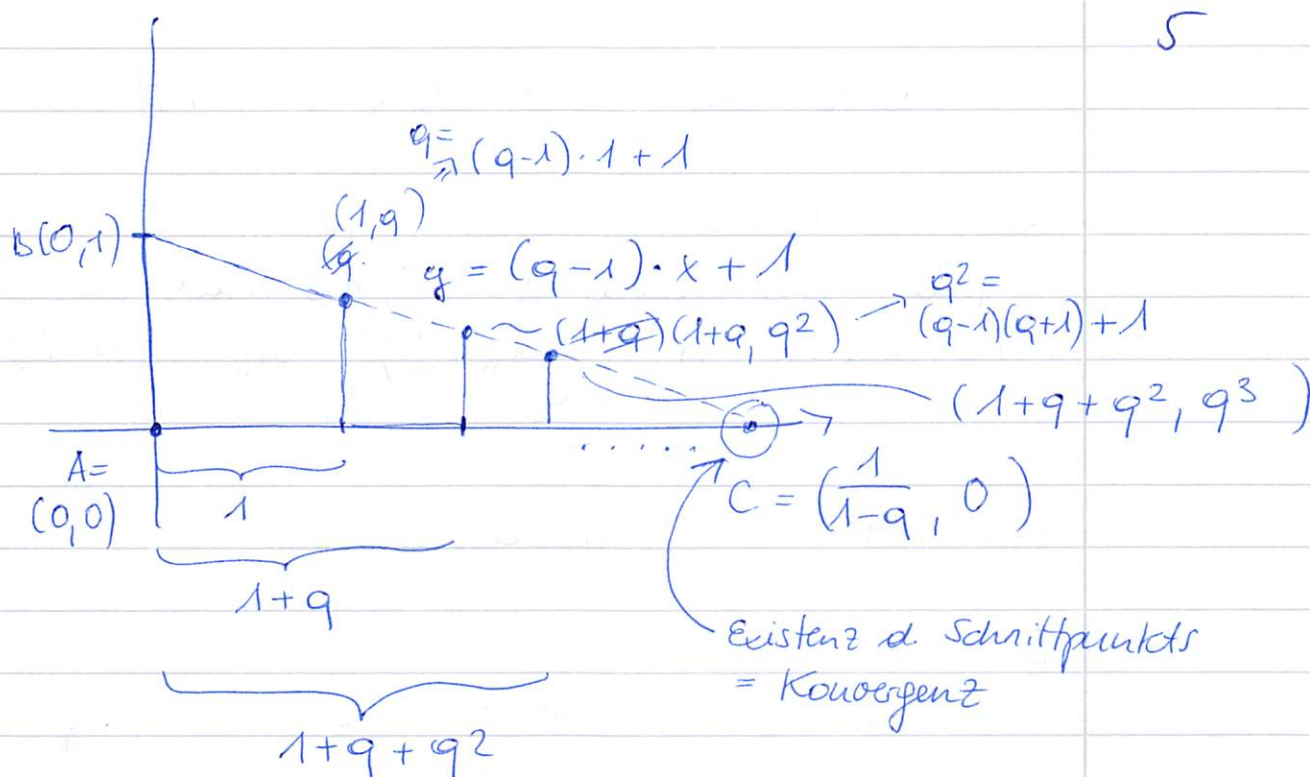 5
q=
(q-1)·1+1
(1,q)
B(0,1)
y = (q-1)·x+1
(1+q)(1+q, q²)
q² =
(q-1)(q+1)+1
(1+q+q², q³)
A=
(0,0)
1
C = (1/(1-q), 0)
1+q
Existenz d. Schnittpunkts
= Konvergenz
1+q+q²